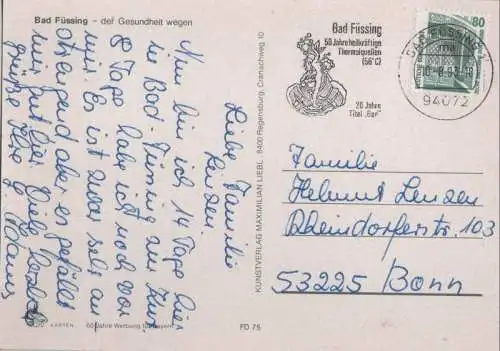 Bad Füssing – der Gesundheit wegen
Liebe Familie
Linden.
Nun bin ich 14 Tage hier
in Bad-Füssing zur Kur
8 Tage habe ich noch vor
mir. Es ist zwar sehr an
strengend aber es gefällt
mir gut hier. Viele
grüße
60 Jahre Werbung für Bayern
FD 75
KUNSTVERLAG MAXIMILIAN LIEBL · 8400 Regensburg, Cranachweg 10
Bad Füssing
50 Jahre heilkräftige
Thermalquellen
(56°C)
20 Jahre
Titel „Bad"
BAD FÜSSING
94072
80
Familie
Helmut Linden
Rheindorferstr. 103
53225 Bonn